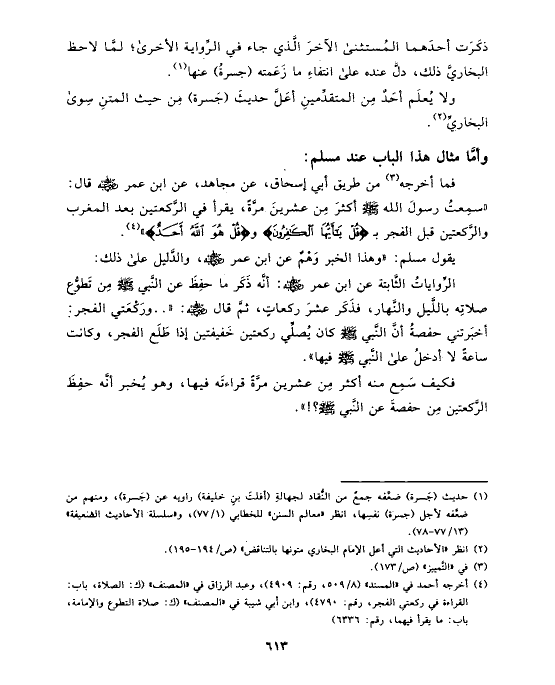 ذكَرَت أحدَهما المُستثنىٰ الآخرَ الَّذي جاء في الرِّواية الأخرىٰ؛ لمَّا لاحظ
البخاريُّ ذلك، دلَّ عنده علىٰ انتفاءِ ما زَعَمته (جسرةُ) عنها(١).
ولا يُعلَم أحَدٌ مِن المتقدِّمينِ أعَلَّ حديثَ (جَسرة) مِن حيث المتنِ سِوىٰ
البخاريِّ(٢).
وأمَّا مثال هذا الباب عند مسلم:
فما أخرجه(٣) من طريق أبي إسحاق، عن مجاهد، عن ابن عمر ﵁ قال:
«سمِعتُ رسولَ الله ﷺ أكثرَ مِن عشرينَ مرَّةً، يقرأ في الرَّكعتين بعد المغرب
والرَّكعتين قبل الفجر بـ ﴿قُلْ يَٰٓأَيُّهَا ٱلْكَٰفِرُونَ﴾ و﴿قُلْ هُوَ ٱللَّهُ أَحَدٌ﴾»(٤).
يقول مسلم: «وهذا الخبر وَهْمٌ عن ابن عمر ﵁، والدَّليل علىٰ ذلك:
الرِّواياتُ الثَّابتة عن ابن عمر ﵁: أنَّه ذَكَر ما حفِظ عن النَّبي ﷺ مِن تَطوُّعِ
صلاتِه باللَّيل والنَّهار، فذَكَر عشرَ ركعاتٍ، ثمَّ قال ﵁: «..ورَكْعَتي الفجر:
أخبَرتني حفصةُ أنَّ النَّبي ﷺ كان يُصلِّي ركعتين خَفيفتين إذا طَلَع الفجر، وكانت
ساعةً لا أدخلُ علىٰ النَّبي ﷺ فيها».
فكيف سَمِع منه أكثر مِن عشرين مرَّةً قراءتَه فيها، وهو يُخبر أنَّه حفِظَ
الرَّكعتين مِن حفصةَ عن النَّبي ﷺ؟!».
(١) حديث (جَسرة) ضعَّفه جمعٌ من النُّقاد لجهالةِ (أفلتَ بنِ خليفة) راويه عن (جَسرة)، ومنهم من
ضعَّفه لأجل (جسرة) نفسِها، انظر «معالم السنن» للخطابي (٧٧/١)، و«سلسلة الأحاديث الضعيفة»
(٧٧/١٣-٧٨).
(٢) انظر «الأحاديث التي أعل الإمام البخاري متونها بالتناقض» (ص/١٩٤-١٩٥).
(٣) في «التَّمييز» (ص/١٧٣).
(٤) أخرجه أحمد في «المسند» (٥٠٩/٨، رقم: ٤٩٠٩)، وعبد الرزاق في «المصنف» (ك: الصلاة، باب:
القراءة في ركعتي الفجر، رقم: ٤٧٩٠)، وابن أبي شيبة في «المصنف» (ك: صلاة التطوع والإمامة،
باب: ما يقرأ فيهما، رقم: ٦٣٣٦)
٦١٣